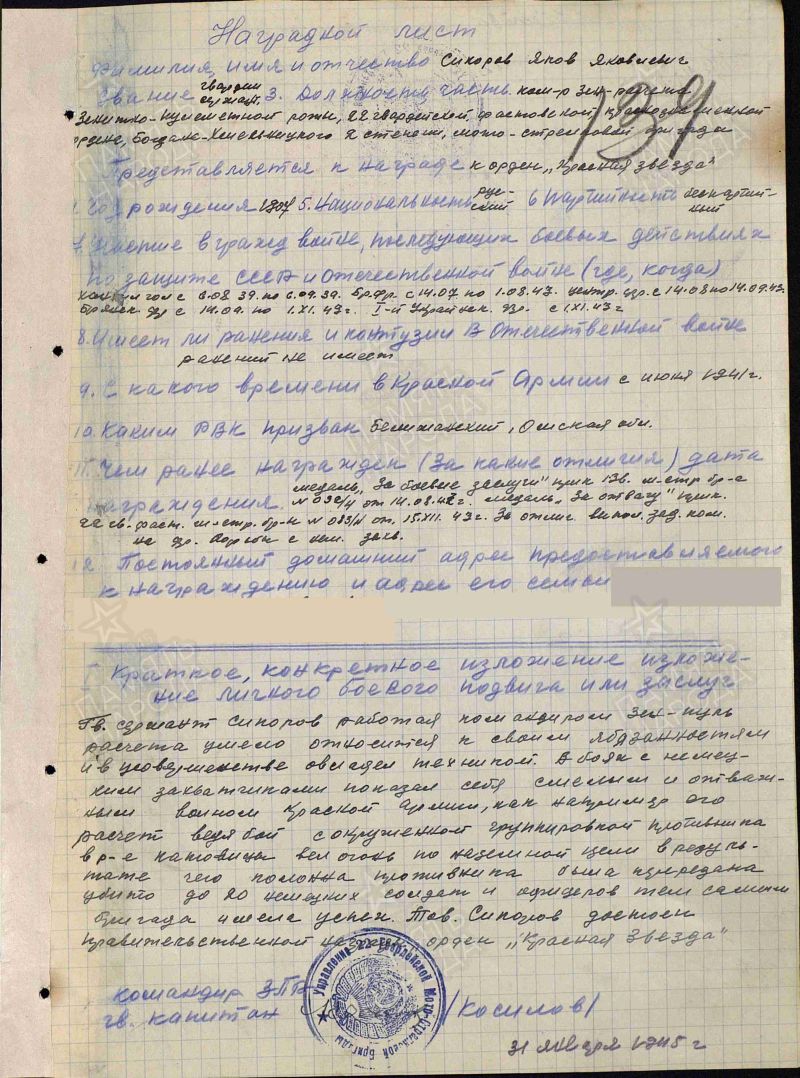 Наградной лист
139
Фамилия, имя и отчество Сикоров Яков Яковлевич
Звание гвардии сержант 3. Должность, часть ком-р зен-расчета
Зенитно-пулеметной роты, 22 гвардейской фастовской краснознаменной
ордена, Богдана-Хмельницкого 2 степени, мото-стрелковой бригады
Представляется к награде к орден „Красная звезда"
Год рождения 1907 5. Национальность русский 6 Партийность беспартийный
7. Участие в гражд войне, последующих боевых действиях
по защите СССР и отечественной войне (где, когда)
Халхин гол с 6.08 39. по 6.09.39. Бр.фр. с 14.07 по 1.08.43. центр. фр. с 14.08 по 14.09.43.
Брянск. фр с 14.09. по 1.XI.43г. I-й Украинск. фр. с 1.XI.43 г
8. Имеет ли ранения и контузии в отечественной войне
ранений не имеет
9. С какого времени в Красной Армии с июня 1941 г.
10. Каким РВК призван , Омская обл.
11. Чем ранее награжден (за какие отличия) дата
награждения. медаль „За боевые заслуги" прик м-стр бр-е
от 14.08. медаль „За отвагу" прик.
гв. фаст. м-стр. бр-и от. 15.XII. 43 г. За отлич. випол. зад. ком.
на фр. борьбы с нем. захв.
12. Постоянный домашний адрес предоставляемого
к награждению и адрес его семьи
I Краткое, конкретное изложение изложе-
ние личного боевого подвига или заслуг
Гв. сержант Сикоров работая командиром зен-пуль
расчета умело относится к своим обязанностям
и в усовершенстве овладел техникой. В боях с немец-
ким захватчиками показал себя смелым и отваж-
ным воином Красной Армии, как например его
расчет ведя бой с окруженной группировкой противника
в р-е катовицы вел огонь по наземной цели в резуль-
тате чего колонна противника была
убито до 20 немецких солдат и офицеров тем самым
Бригада имела успех. Тов. Сикоров достоен
правительственной награды орден „Красная Звезда"
командир ЗПР
гв. капитан /Косилов/
Управление 22 Гвардейской Мото-Стрелковой Бригады
31 января 1945 г